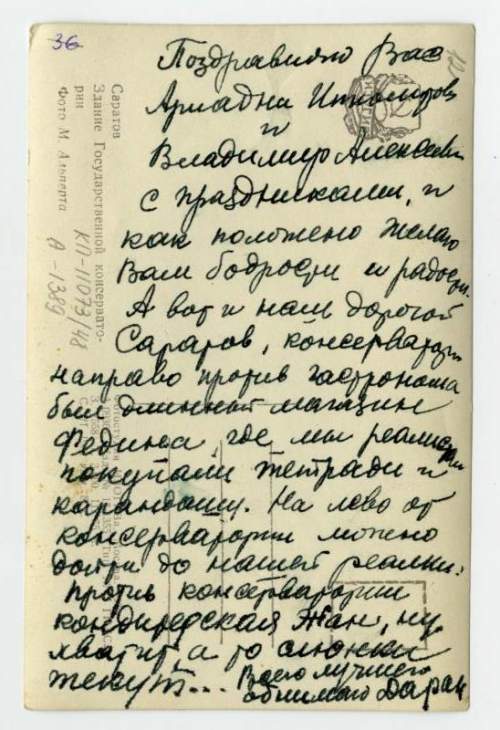 36
Поздравляю Вас
Ариадна Ипполитов
и
Владимир Алексееви
с праздниками, и
как положено желаю
Вам бодрости и радости.
А вот и наш дорогой
Саратов, консерватория
направо против гастронома
был длинный магазин
Федина, где мы реалисты
покупали тетради и
карандаши. На лево от
консерватории можно
дойти до нашей реалки.
Против консерватории
кондидерская Жан, ну
хватит, а то слюнки
текут... Всего лучшего
обнимаю Даран
Саратов
Здание Государственной консервато-
рии
Фото М. Альперта
КП-11073/48
А-1389